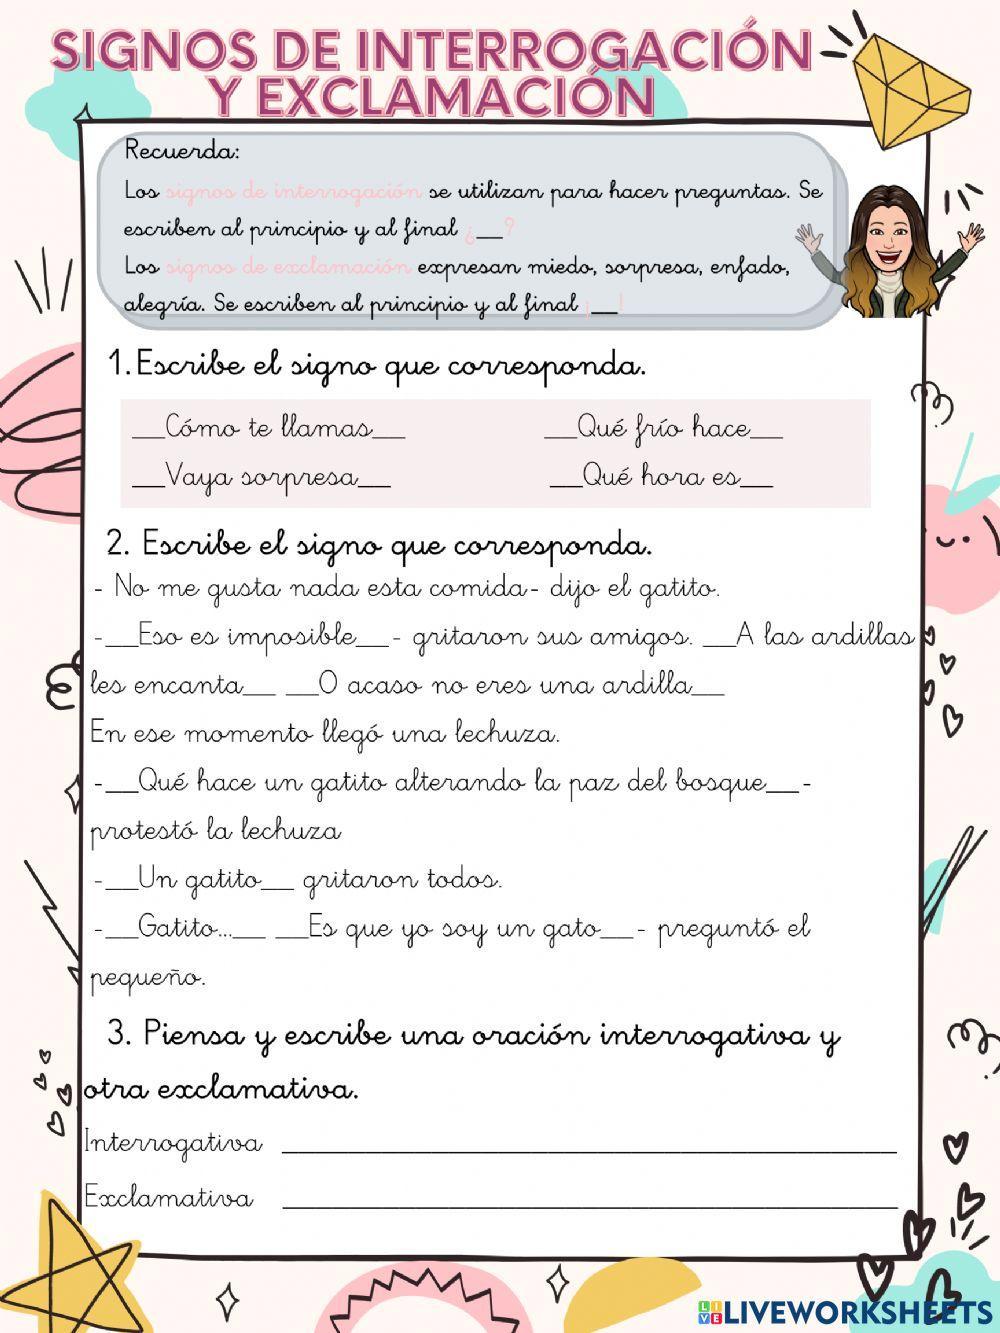 SIGNOS DE INTERROGACIÓN
Y EXCLAMACIÓN
Recuerda:
Los signos de interrogación se utilizan para hacer preguntas. Se
escriben al principio y al final ¿__?
Los signos de exclamación expresan miedo, sorpresa, enfado,
alegría. Se escriben al principio y al final ¡__!
1. Escribe el signo que corresponda.
__Cómo te llamas__ __Qué frío hace__
__Vaya sorpresa__ __Qué hora es__
2. Escribe el signo que corresponda.
- No me gusta nada esta comida- dijo el gatito.
-__Eso es imposible__- gritaron sus amigos. __A las ardillas
les encanta__ __O acaso no eres una ardilla__
En ese momento llegó una lechuza.
-__Qué hace un gatito alterando la paz del bosque__-
protestó la lechuza
-__Un gatito__ gritaron todos.
-__Gatito...__ __Es que yo soy un gato__- preguntó el
pequeño.
3. Piensa y escribe una oración interrogativa y
otra exclamativa.
Interrogativa ____________________
Exclamativa ____________________
LIVEWORKSHEETS